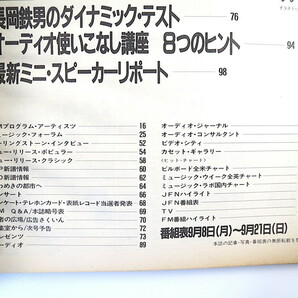 長岡鉄男のダイナミック・テスト 76
オーディオ使いこなし講座 8つのヒント 94
最新ミニ・スピーカーリポート 98
Mプログラム・アーティスツ 16
ュージック・フォーラム 25
ーリングストーン・インタビュー
ュー・リリース・ポピュラー
ュー・リリース・クラシック 58
P新譜情報 60
D新譜情報 62
わめきの都市へ 64
ンサート 66
ンケート・テレホンカード・表紙レコード当選者発表 68
M Q&A/本誌略号表
者の広場/広告さくいん
集室から/次号予告
レゼンツ
ーディオ 89
オーディオ・ジャーナル
オーディオ・コンサルタント
ビデオ・シティ
カセット・ギャラリー
〈ヒット・チャート〉
ビルボード全米チャート
ミュージック・ウイーク全英チャート
ミュージック・ラボ国内チャート
JFNハイライト
JFN番組表
TV
FM番組ハイライト
番組表9月8日(月)〜9月21日(日)
本誌の記事・写真・番組表の無断転載を